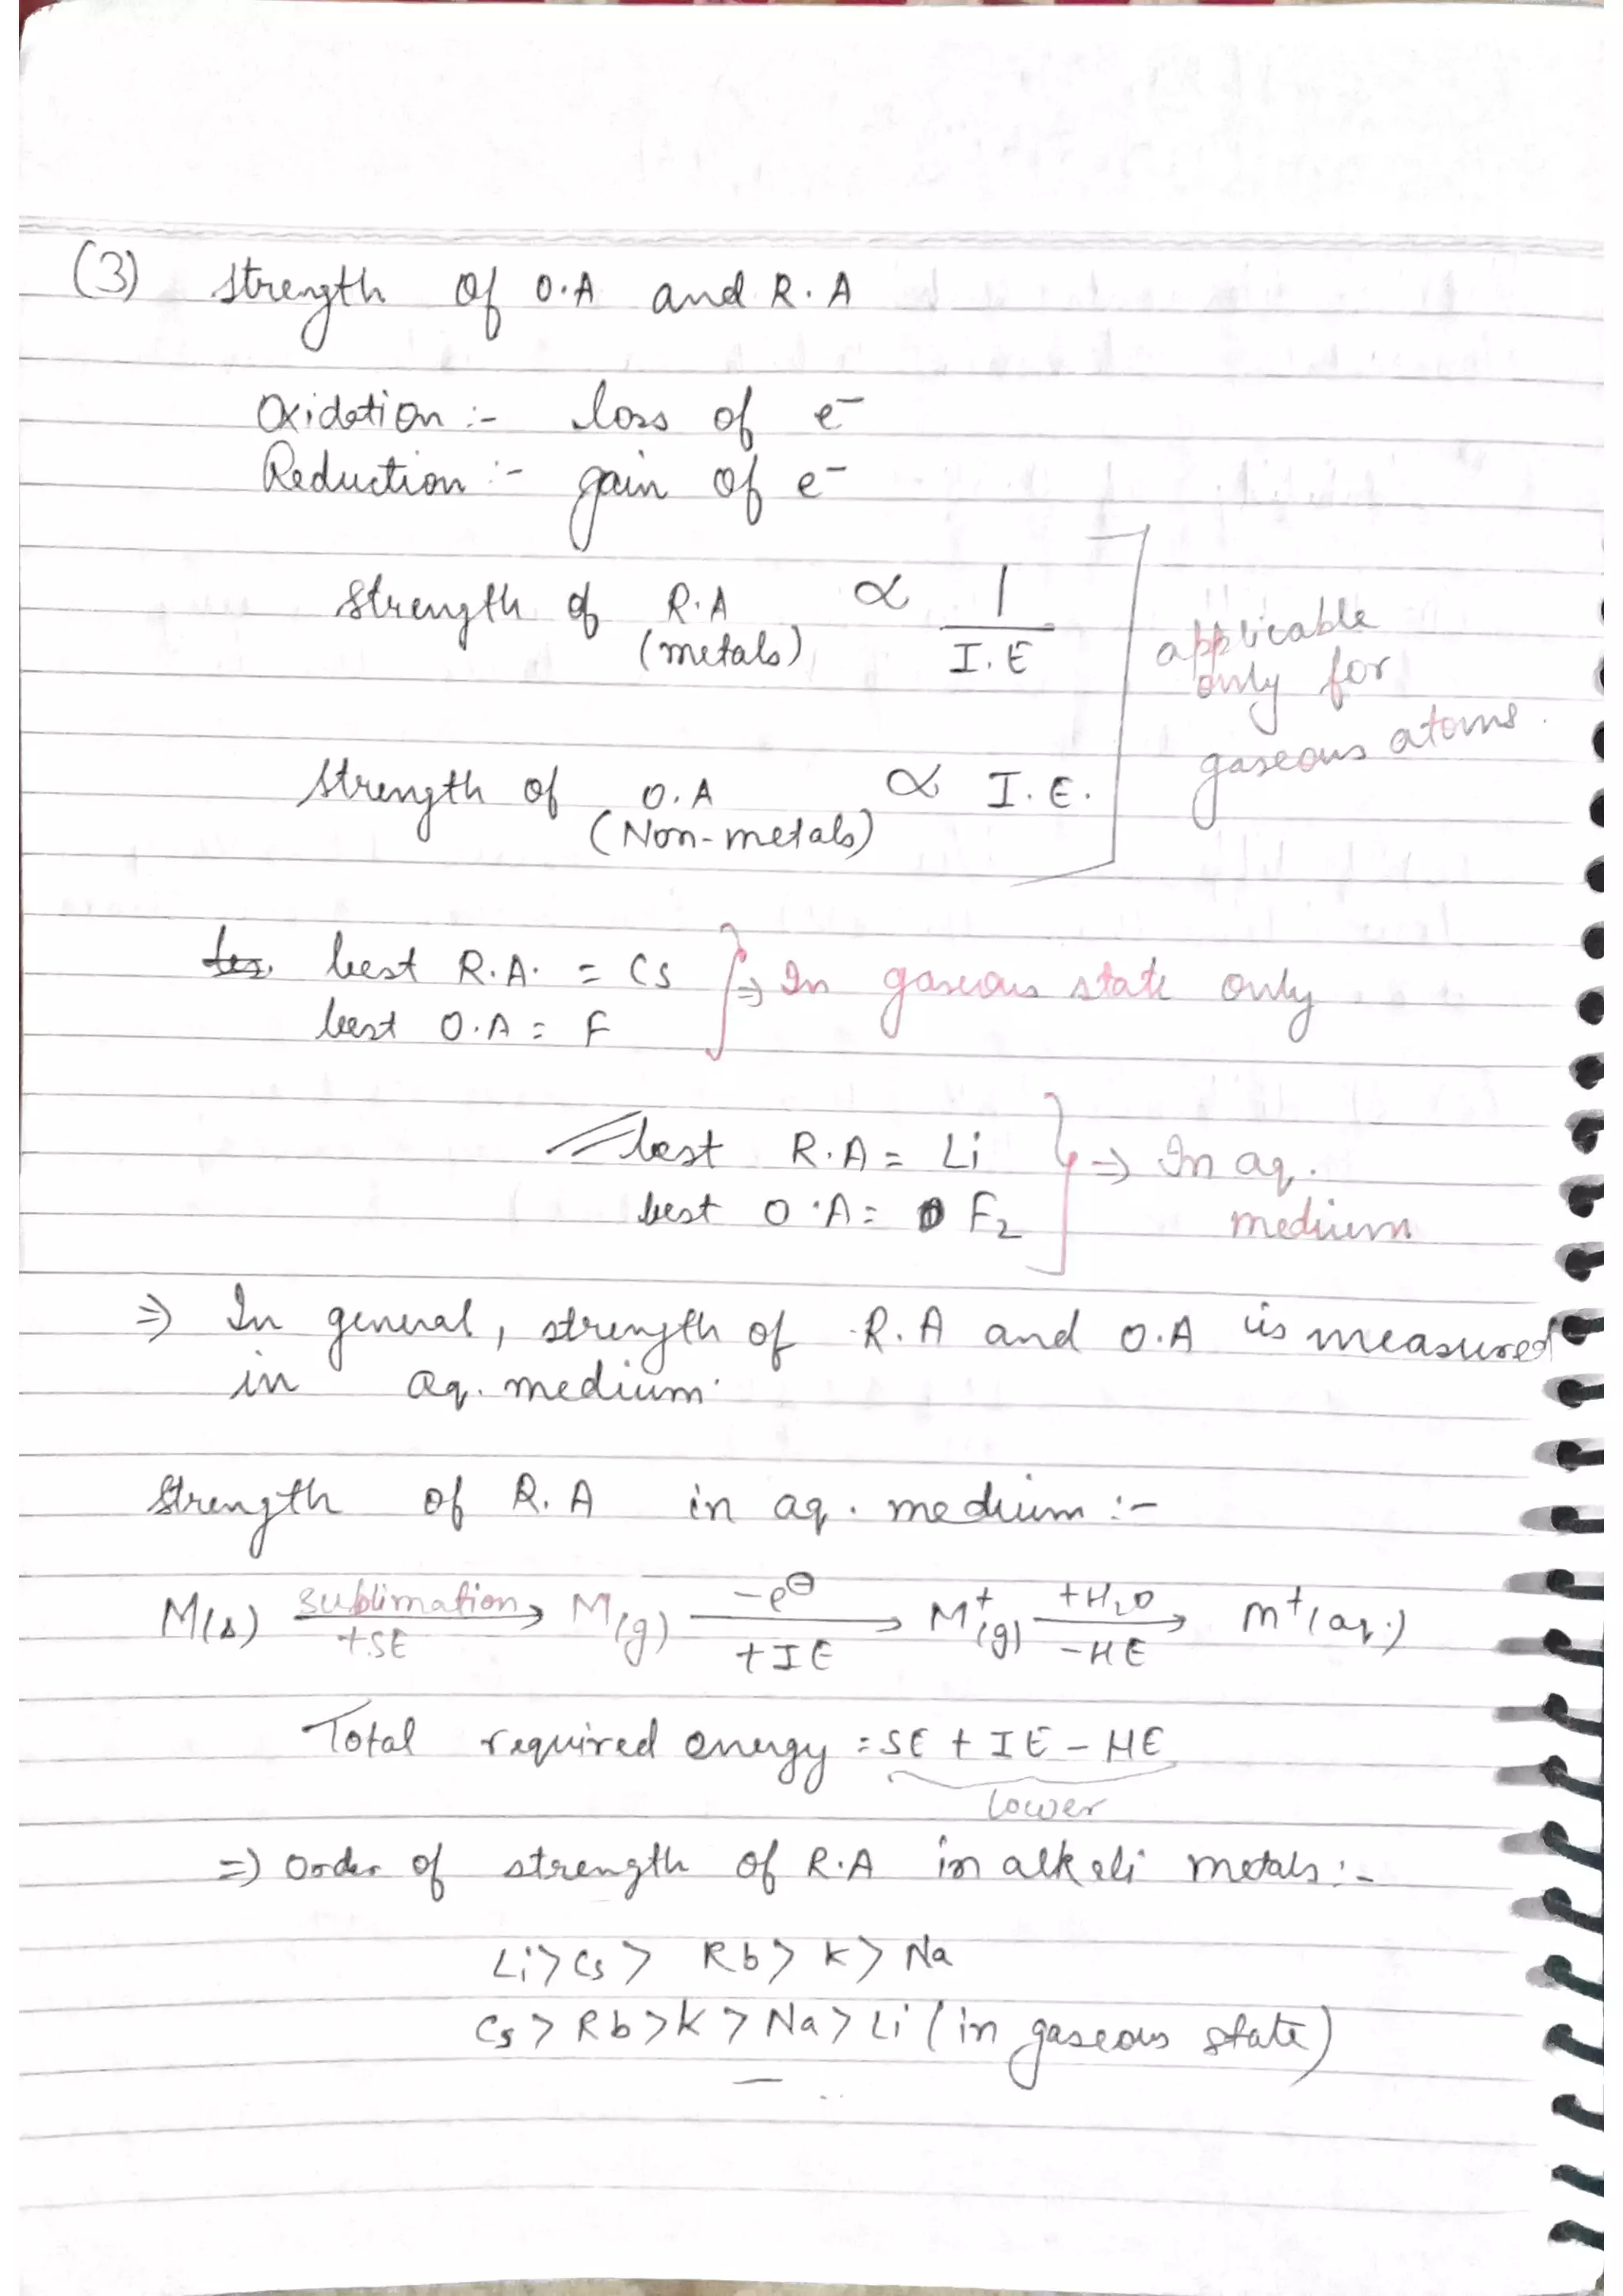 (3) Strength of O.A and R.A
Oxidation :- loss of e⁻
Reduction :- gain of e⁻
Strength of R.A ∝ 1
(metals) I.E
applicable
only for
gaseous atoms.
Strength of O.A ∝ I.E.
(Non-metals)
best R.A. = Cs ⇒ In gaseous state only
best O.A = F
best R.A = Li ⇒ In aq.
best O.A = F₂ medium
⇒ In general, strength of R.A and O.A is measured
in aq. medium.
Strength of R.A in aq. medium :-
M(s) sublimation → M(g) -e⊖ → M⁺(g) +H₂O → m⁺(aq.)
+SE +IE -HE
Total required energy = SE + IE - HE
lower
⇒ Order of strength of R.A in alkali metals :-
Li > Cs > Rb > K > Na
Cs > Rb > K > Na > Li (in gaseous state)